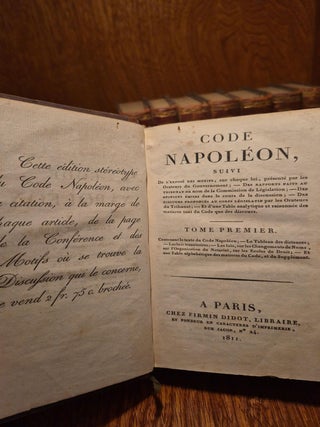 Cette édition stéréotype
du Code Napoléon, avec
citation, à la marge de
chaque article, de la page
de la Conférence et des
Motifs où se trouve la
Discussion qui le concerne,
se vend 2 fr. 75 c. broché.
CODE
NAPOLÉON,
SUIVI
De l'exposé des motifs, sur chaque loi, présenté par les
Orateurs du Gouvernement; — Des rapports faits au
Tribunat au nom de la Commission de Législation; — Des
opinions émises dans le cours de la discussion; — Des
discours prononcés au corps législatif par les Orateurs
du Tribunat; — Et d'une Table analytique et raisonnée des
matières tant du Code que des discours.
TOME PREMIER.
Contenant le texte du Code Napoléon; — Le Tableau des distances;
— Les lois transitoires; — Les lois, sur les Changemens de Noms;
sur l'Organisation du Notariat, sur les Ecoles de Droit; — Et
une Table alphabétique des matières du Code, et du Supplément.
A PARIS,
CHEZ FIRMIN DIDOT, LIBRAIRE,
ET FONDEUR EN CARACTÈRES D'IMPRIMERIE,
RUE JACOB, N° 24.
1811.